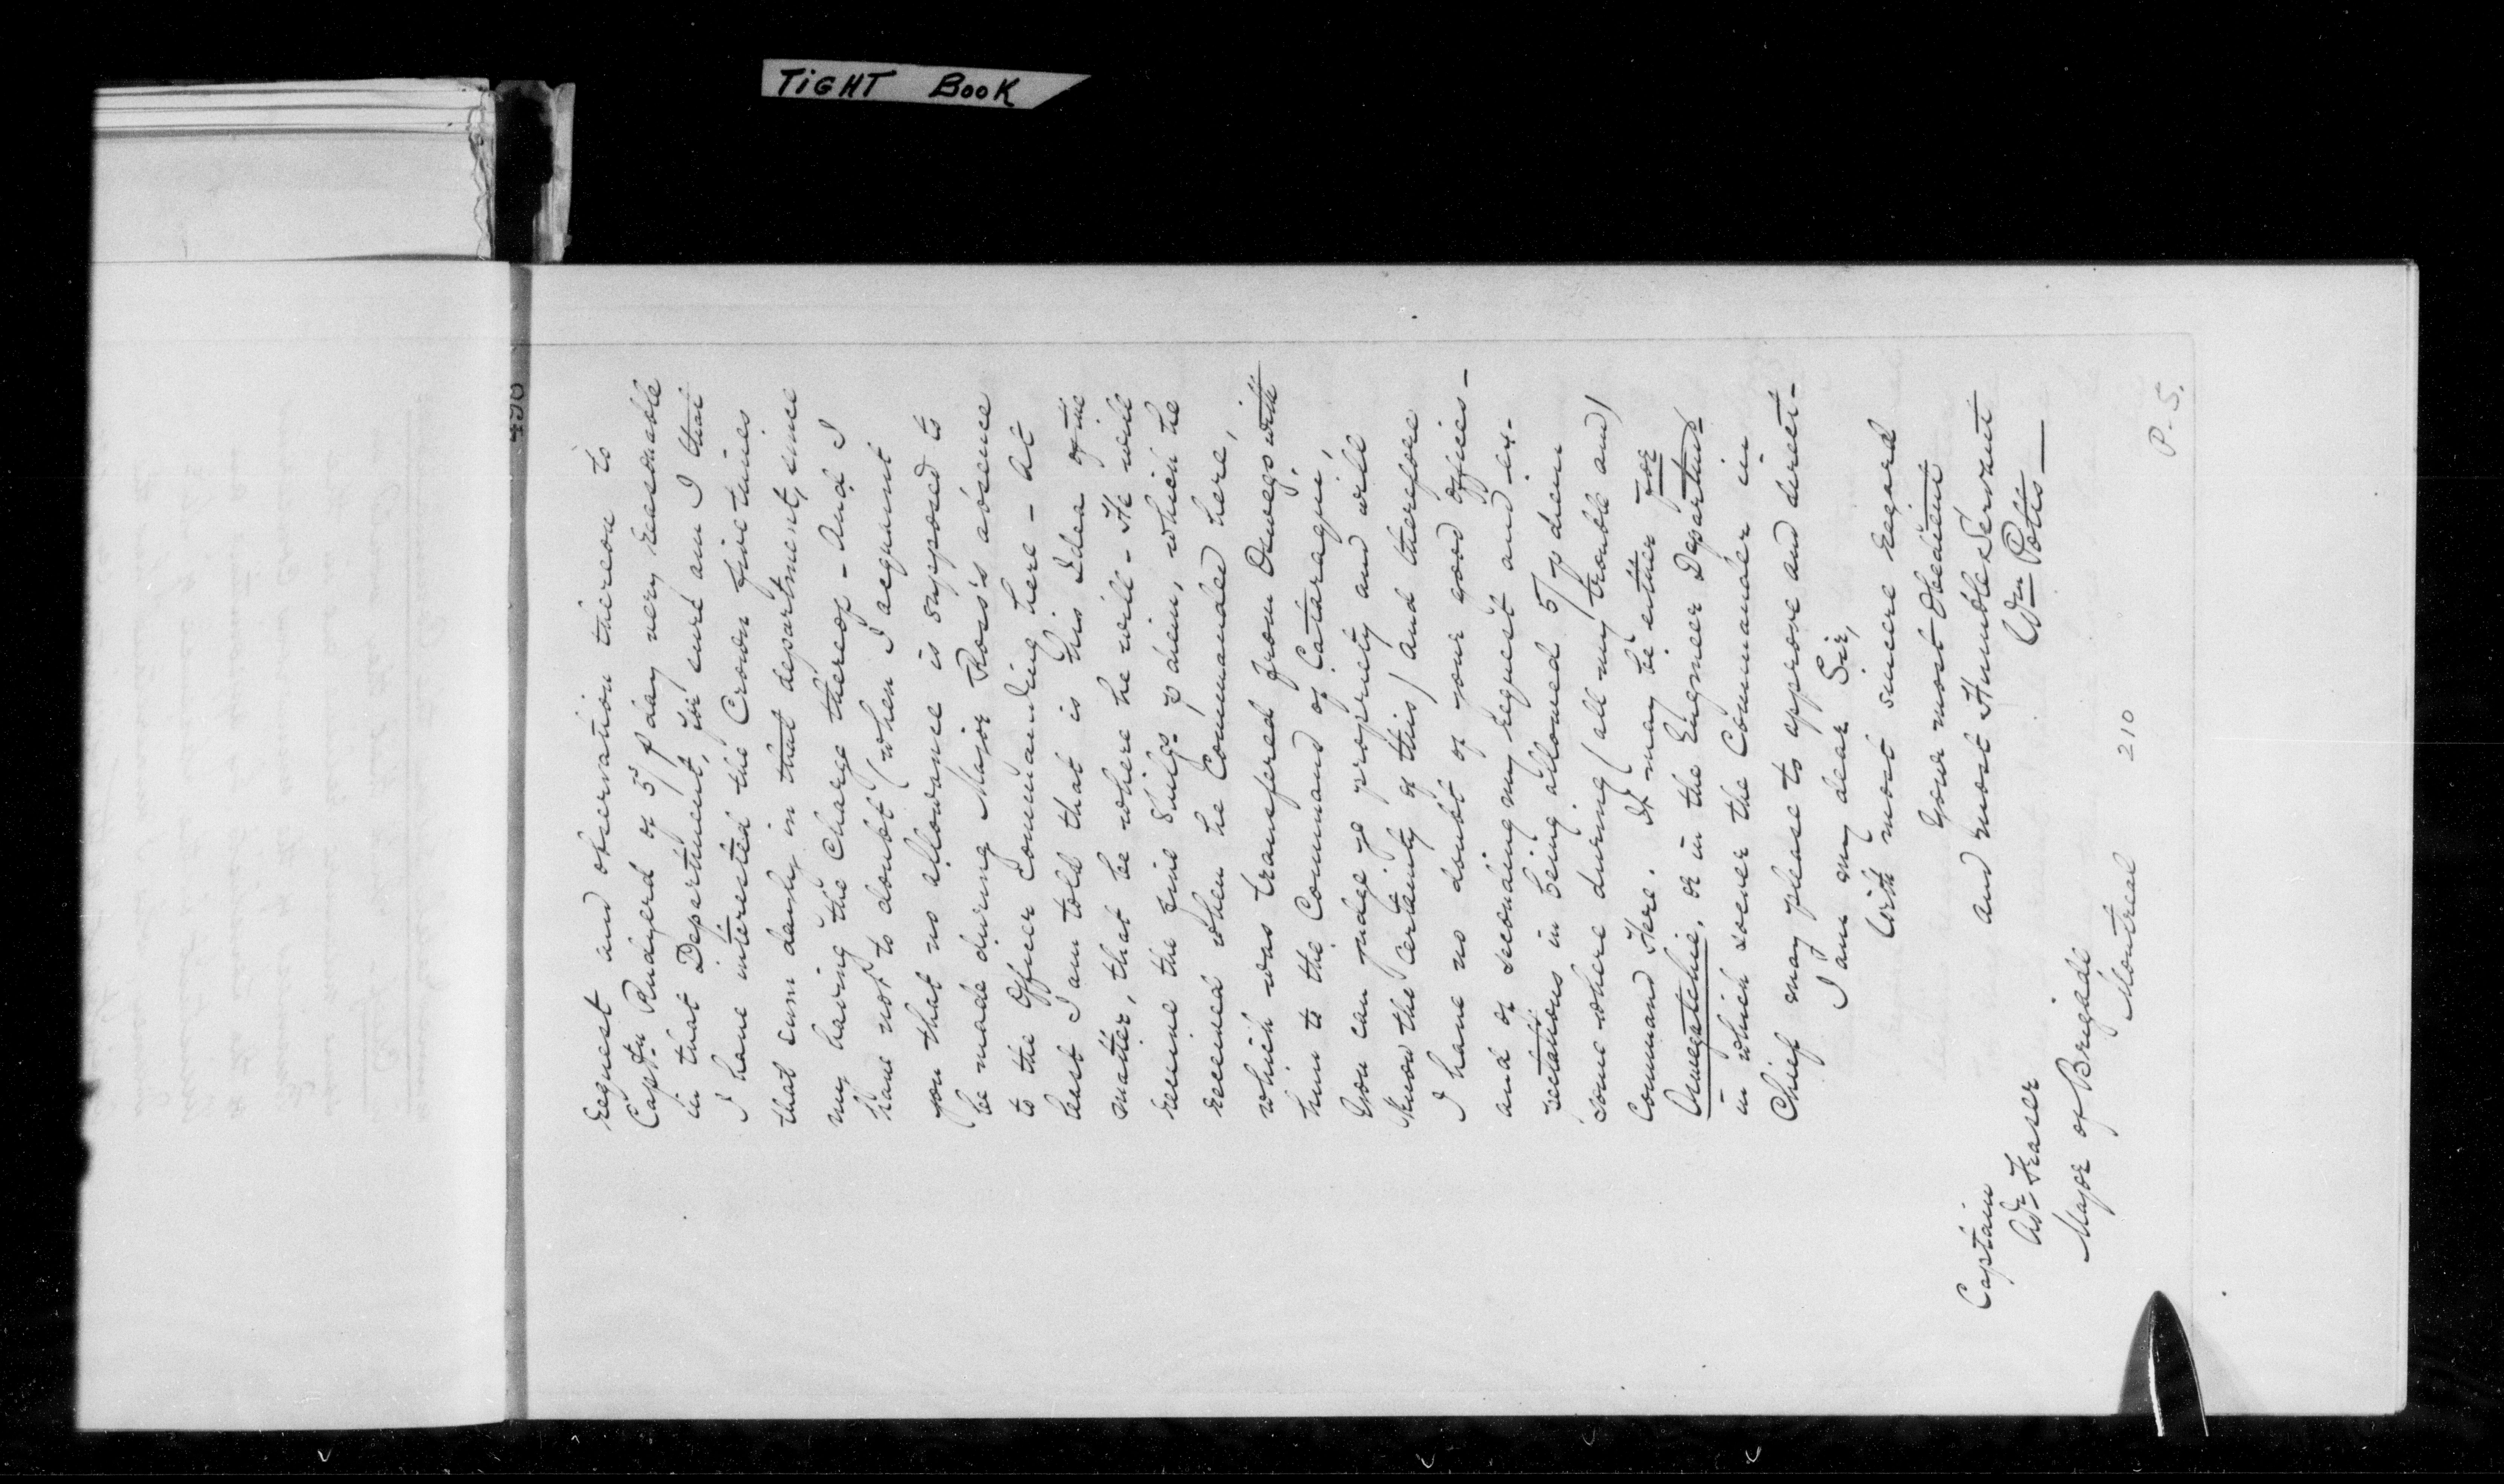 TIGHT BOOK
496
request and observation thereon to
Capt.n Rudyerd of 5/ p day very reasonable
in that Department, for sure am I that
I have interested the Crown five times
that sum dayly in that department, since
my having the Charge thereof - And I
have not to doubt (when I acquaint
you that no allowance is supposed to
be made during Major Ross's absence
to the Officer Commanding here - At
least I am told that is his Idea of the
matter, that be where he will - He will
receive the five Shillgs p diem, which he
received when he Commanded here,
which was transfered from Oswego with
him to the Command of Cataraqui,
You can judge ye propriety and will
know the certainty of this) and therefore
I have no doubt of your good offices -
and of seconding my request and ex-
pectations in being allowed 5/ p diem
some where during (all my trouble and)
Command Here. It may be either for
Oswegatchie, or in the Engineer Department
in which soever the Commander in
Chief may please to approve and direct -
I am my dear Sir,
With most sincere regard
Your most Obedient
and most Humble Servant
Wm Potts
Captain
Adr Fraser
Major of Brigade
Montreal
210
P. S.